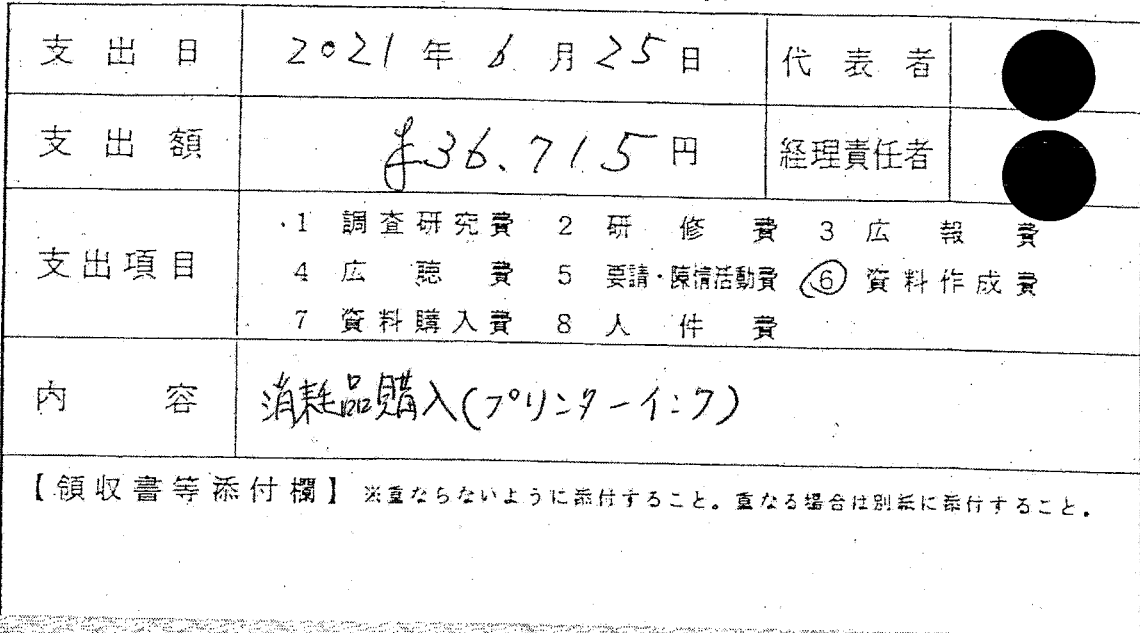 支出日 2021年6月25日 代表者
支出額 ¥36.715円 経理責任者
支出項目
1 調査研究費 2 研修費 3 広報費
4 広聴費 5 要請・陳情活動費 ⑥ 資料作成費
7 資料購入費 8 人件費
内容 消耗品購入(プリンターインク)
【領収書等添付欄】 ※重ならないように添付すること。重なる場合は別紙に添付すること。